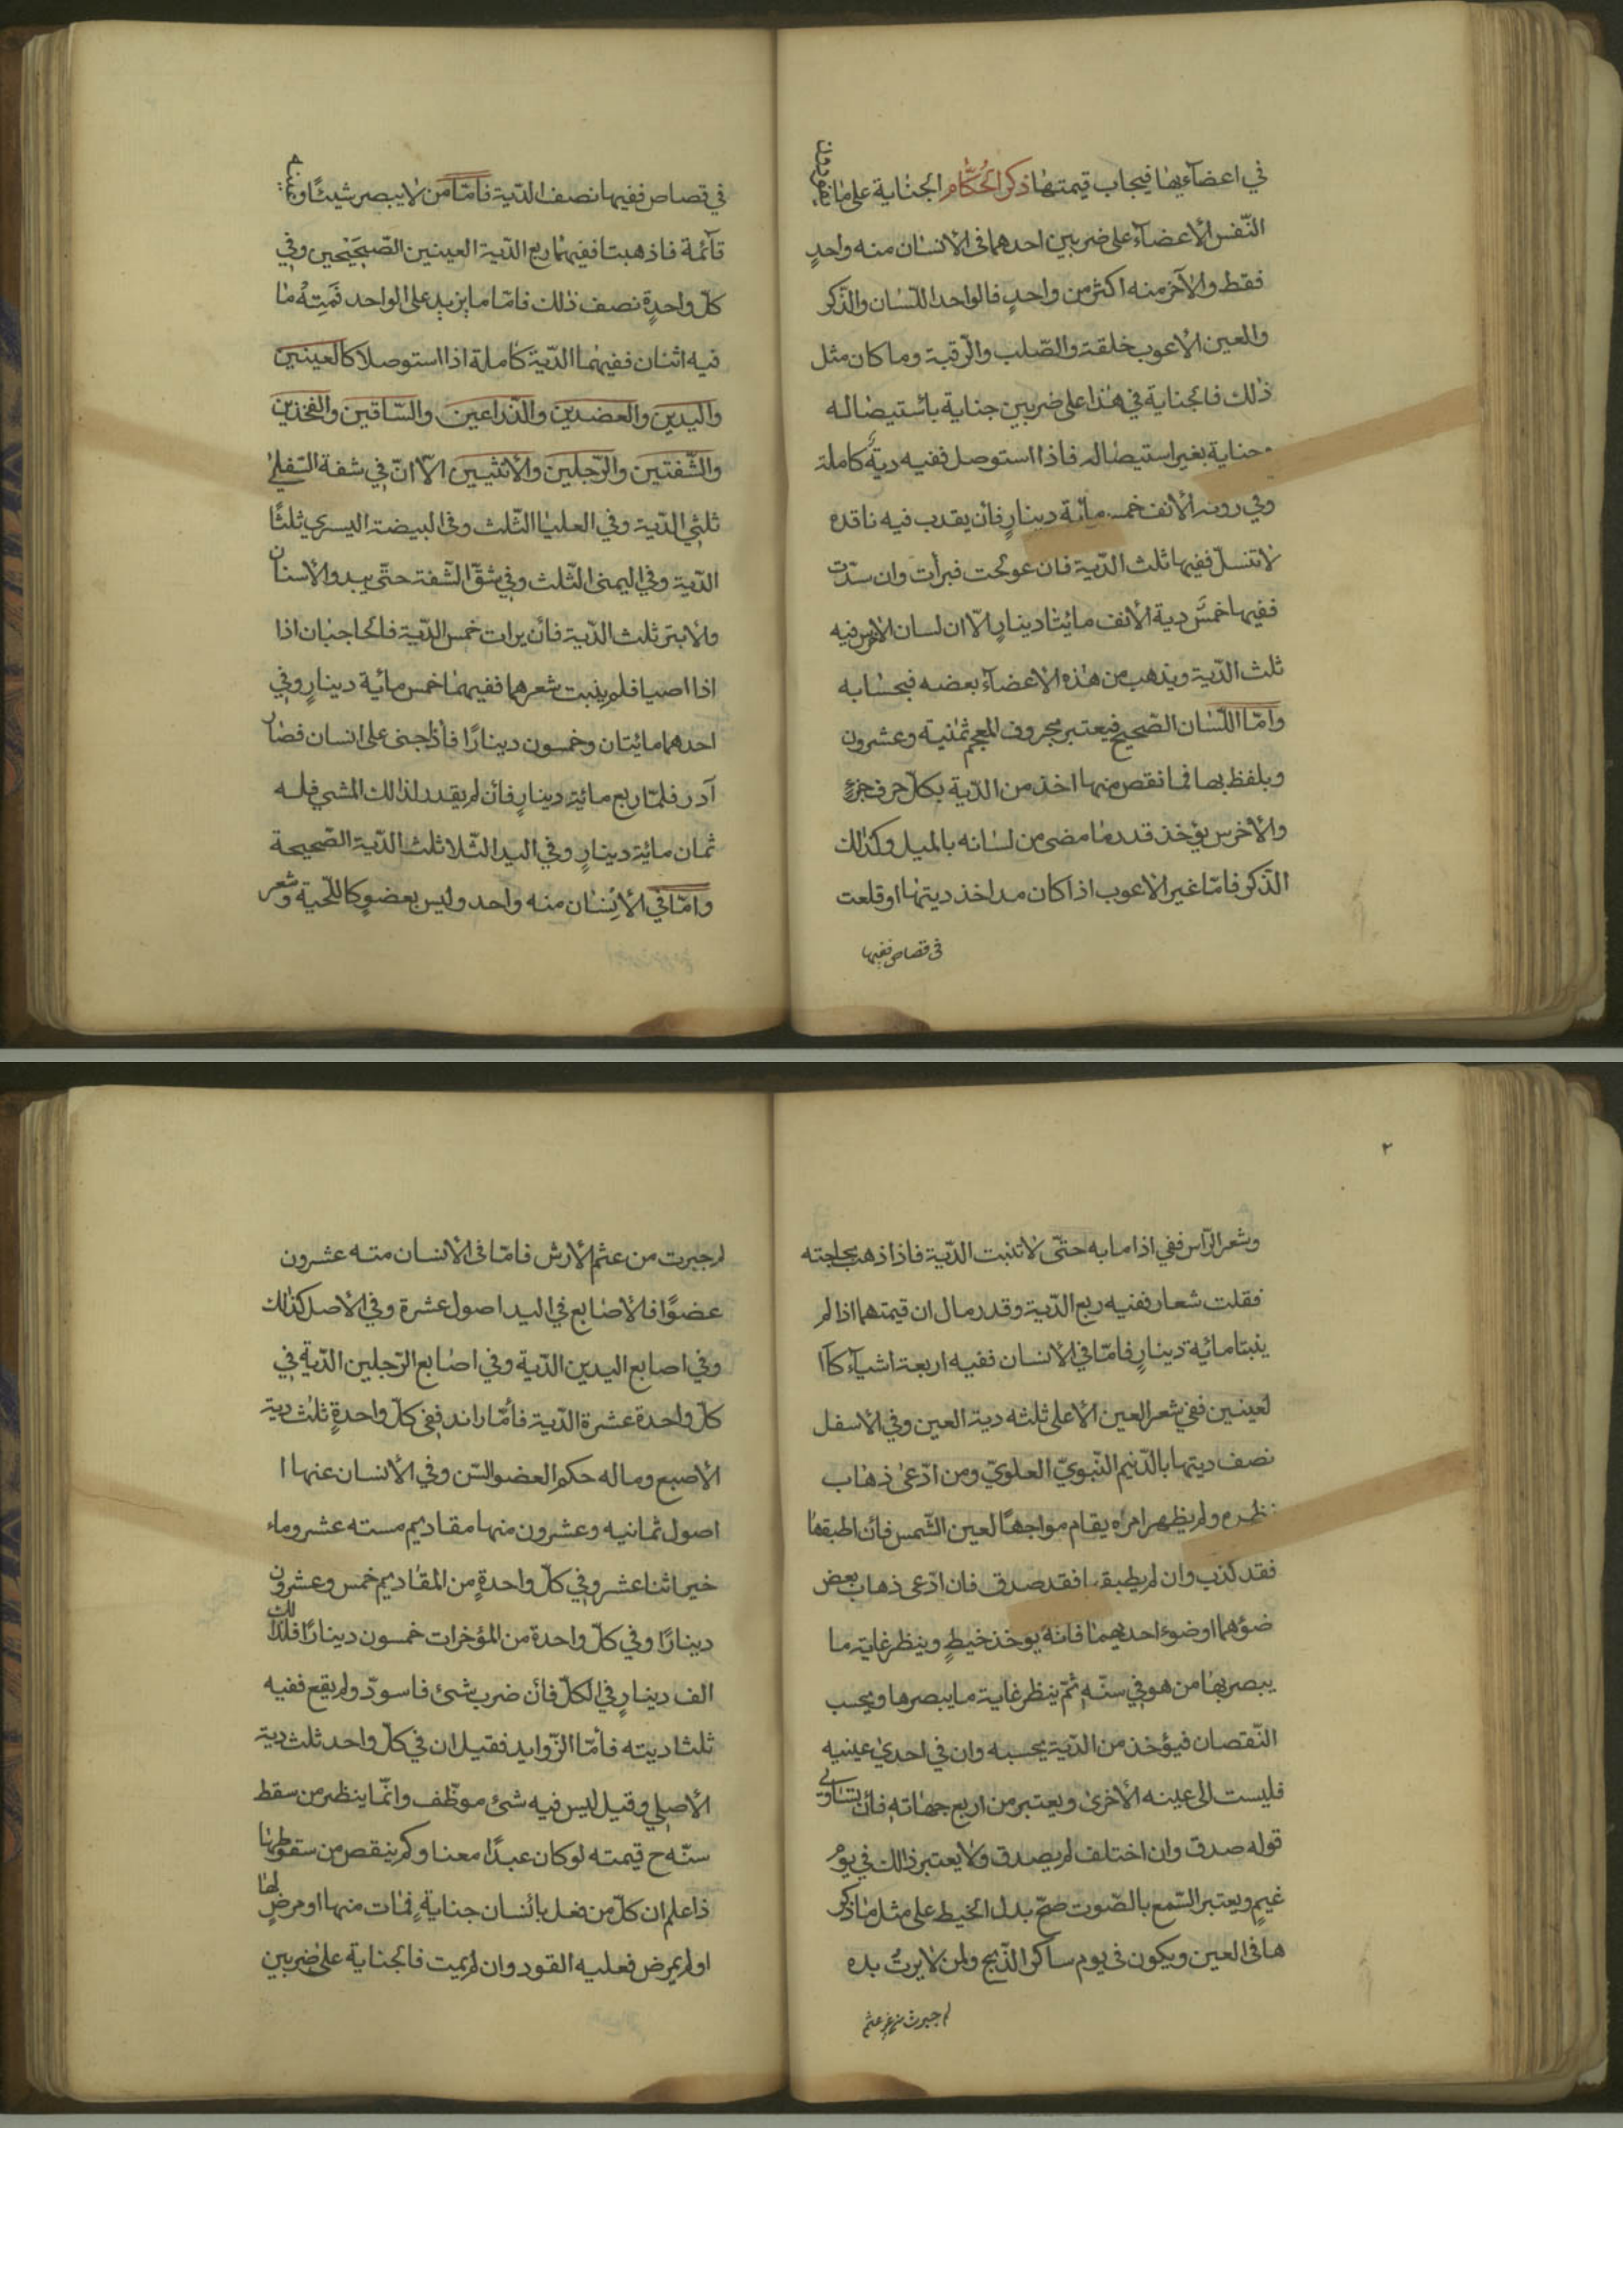 في اعضآءيها فيجاب قيمتها ذكر الحُكَّام الجناية على ما دون
النّفس الأعضآء على ضربين احدهما فى الأنسان منه واحدٍ
فقط والآخر منه اكثر من واحدٍ فالواحد اللّسان والذّكر
والعين الأعوب خلقة والصّلب والرّقبة وما كان مثل
ذلك فالجناية في هذا على ضربين جناية باستيصاله
وجناية بغير استيصاله فاذا استوصل ففيه ديةٌ كاملة
وفي روثه الأنف خمسمائة دينارٍ فأن يقدب فيه ناقده
لاتنسلّ ففيها ثلث الدّية فان عولجت فبرأت وان سدّت
ففيها خمسَ دية الأنف مائيتا دينارٍ الّا ان لسان الاخرس فيه
ثلث الدّية ويذهب من هذه الأعضآء بعضه فبحسابه
وامّا اللّسان الصّحيح فيعتبر بحروف المعجم ثمنية وعشرون
ويلفظ بها فما نقص منها اخذ من الدّية بكلّ حرف جزءٍ
والأخرس يؤخذ قدر ما مضى من لسانه بالميل وكذلك
الذّكر فامّا غير الاعوب اذا كان مد اخذ ديتها او قلعت
فى قصاص ففيها
في قصاص ففيها نصف الدّية فامّا من لايبصر شيئًا وهي
قآئمة فاذهبتا ففيهما ربع الدّية العينين الصّحيَحين وفي
كلّ واحدةٍ نصف ذلك فامّا ما يزيد على الواحد فَمِنهُ ما
فيه اثنان ففيهما الدّية كاملة اذا استوصلا كالعينين
واليدين والعضدين والذّراعين والسّاقين والفخذين
والشّفتين والرّجلين والأنثيين الّا انّ في شفة السّفلى
ثلثي الدّية وفي العليا الثّلث وفى البيضة اليسرى ثلثًا
الدّية وفي اليمنى الثّلث وفي شقّ الشّفة حتّى يبدو الأسنان
ولابتر ثلث الدّية فأن برات خمس الدّية فالحاجبان اذا
اذا اصيبا فلم ينبت شعرهما ففيهما خمس مائية دينارٍ وفي
احدهما مائيتان وخمسون دينارًا فأذا جنى على انسان فصار
آدر فلمّا ربع مائية دينارٍ فأن لم يقدر لذالك المشي فله
ثمان مائية دينارٍ وفي اليد الشّلا ثلث الدّية الصّحيحة
وامّا في الأنسان منه واحد وليس بعضوٍ كاللّحية وشعر
٢
وشعر الرّاس ففي اذا ما به حتّى لاتنبت الدّية فاذا ذهب بحاجته
فقلت شعار ففيه ربع الدّية وقدر مال ان قيمتهما اذا لم
ينبتا مائية دينارٍ فامّا في الأنسان ففيه اربعة اشيآء كآا
لعينين ففي شعر العين الأعلى ثلثه دية العين وفي الأسفل
نصف ديتها بالدّنيم النّبويّ العلويّ ومن ادّعى ذهاب
نظره ولم يظهر امره يقام مواجهًا لعين الشّمس فأن اطبقها
فقد كذب وان لم يطبقها فقد صدق فان ادّعى ذهاب بعض
ضوْهما او ضوء احديهما فانهُ يوخذ خيطٍ وينظر غاية ما
يبصر بها من هو في سنّهِ ثمّ ينظر غاية ما يبصرها ويحسب
النّقصان فيؤخذ من الدّية بحسبه وان في احدى عينيه
فليست الى عينه الأخرى ويعتبر من اربع جهاته فأن تساوى
قوله صدق وان اختلف لم يصدق ولا يعتبر ذالك في يوم
غيمٍ ويعتبر السّمع بالصّوت صحّ بدل الخيط على مثل ما ذكر
ها فى العين ويكون فى يوم ساكر الذّبح ولمن لا يرتُ بده
لم جبرت من غير عثم
لم جبرت من عثم الأرش فامّا فى الأنسان منه عشرون
عضوًا فالأصابع في اليد اصول عشرة وفي الأصل كذالك
وفي اصابع اليدين الدّية وفي اصابع الرّجلين الدّية في
كلّ واحدة عشرة الدّية فأمّا راند ففي كلّ واحدةٍ ثلث دية
الأصبع وماله حكم العضو السّن وفي الأنسان عنها ا
اصول ثمانيه وعشرون منها مقاديم مسته عشر وماء
خير اثنا عشر وفي كلّ واحدةٍ من المقاديم خمس وعشرون
دينارًا وفي كلّ واحدة من المؤخرات خمسون دينارًا فلذالك
الف دينارٍ في الكلّ فأن ضرب شئ فاسودّ ولم يقع ففيه
ثلثا ديته فأمّا الزّوايد فقيل ان في كلّ واحد ثلث دية
الأصلي وقيل ليس فيه شئ موظّف وانّما ينظر من سقط
سنّه ح قيمته لو كان عبدًا معنا وكم ينقص من سقوطها
ذا علم ان كلّ من فعل بأنسان جنايةٍ فمات منها او مرض لها
او لم يمرض فعليه القود وان لم يميت فالجناية على ضربين